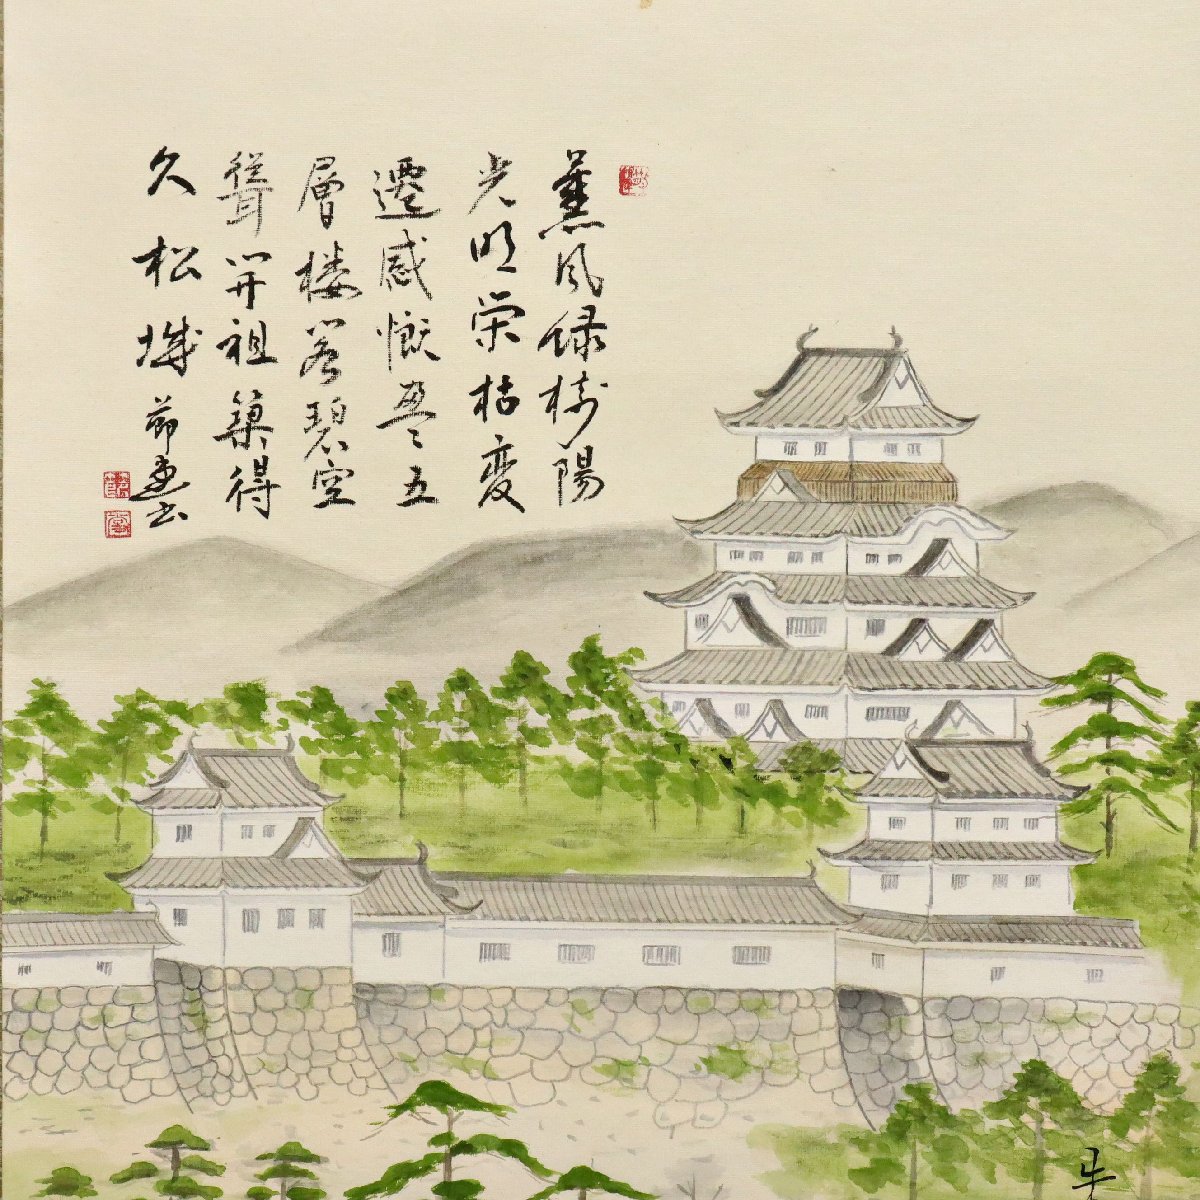 薫風緑樹陽
光明栄枯変
遷感慨畳五
層楼若碧空
聳開祖築得
久松城節画書
朱